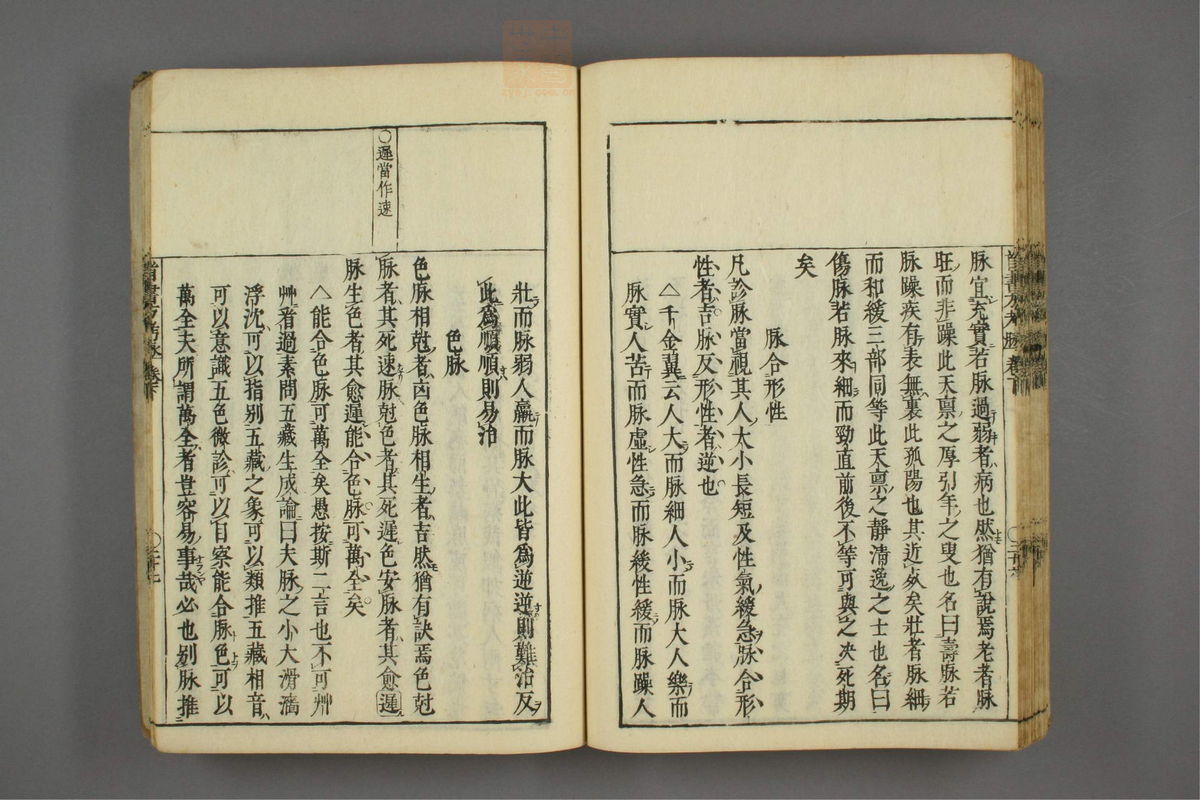 脉宜充實若脉過弱者病也然猶有說焉老者脉
旺而非躁此天禀之厚引年之叟也名曰壽脉若
脉躁疾有表無裏此孤陽也其近於死矣壯者脉細
而和緩三部同等此天禀之靜清逸之士也名曰
傷脉若脉來細而勁直前後不等可與之決死期
矣
脉合形性
凡診脉當視其人大小長短及性氣緩急脉合形
性者吉脉反形性者逆也
△千金翼云人大而脉細人小而脉大人樂而
脉實人苦而脉虛性急而脉緩性緩而脉躁人
壯而脉弱人羸而脉大此皆爲逆逆則難治反
此爲順順則易治
色脉
色脉相尅者凶色脉相生者吉然猶有訣焉色尅
脉者其死速脉尅色者其死遲色安脉者其愈遲
脉生色者其愈遲能合色脉可萬全矣
△能合色脉可萬全矣愚按斯二言也不可艸
艸看過素問五藏生成論曰夫脉之小大滑濇
浮沈可以指别五藏之象可以類推五藏相音
可以意識五色微診可以目察能合脉色可以
萬全夫所謂萬全者豈容易事哉必也别脉推
○遲當作速